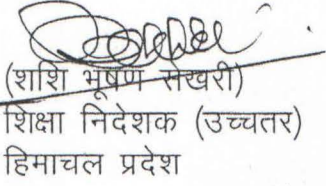 (शशि भूषण सेखरी)
शिक्षा निदेशक (उच्चतर)
हिमाचल प्रदेश